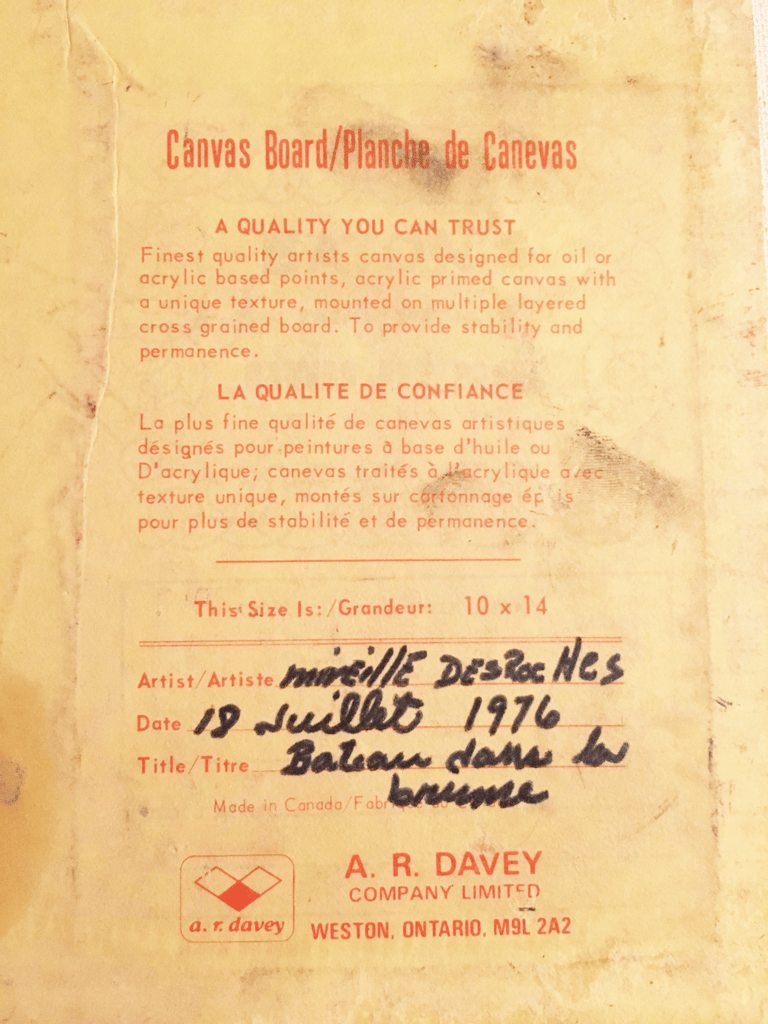 Canvas Board/Planche de Canevas
A QUALITY YOU CAN TRUST
Finest quality artists canvas designed for oil or
acrylic based points, acrylic primed canvas with
a unique texture, mounted on multiple layered
cross grained board. To provide stability and
permanence.
LA QUALITE DE CONFIANCE
La plus fine qualité de canevas artistiques
désignés pour peintures à base d'huile ou
D'acrylique; canevas traités à l'acrylique avec
texture unique, montés sur cartonnage épais
pour plus de stabilité et de permanence.
This Size Is:/Grandeur: 10 x 14
Artist/Artiste mireille DESROCHES
Date 18 Juillet 1976
Title/Titre Bateau dans la
brume
Made in Canada/Fabriqué au
a. r. davey
A. R. DAVEY
COMPANY LIMITED
WESTON, ONTARIO, M9L 2A2